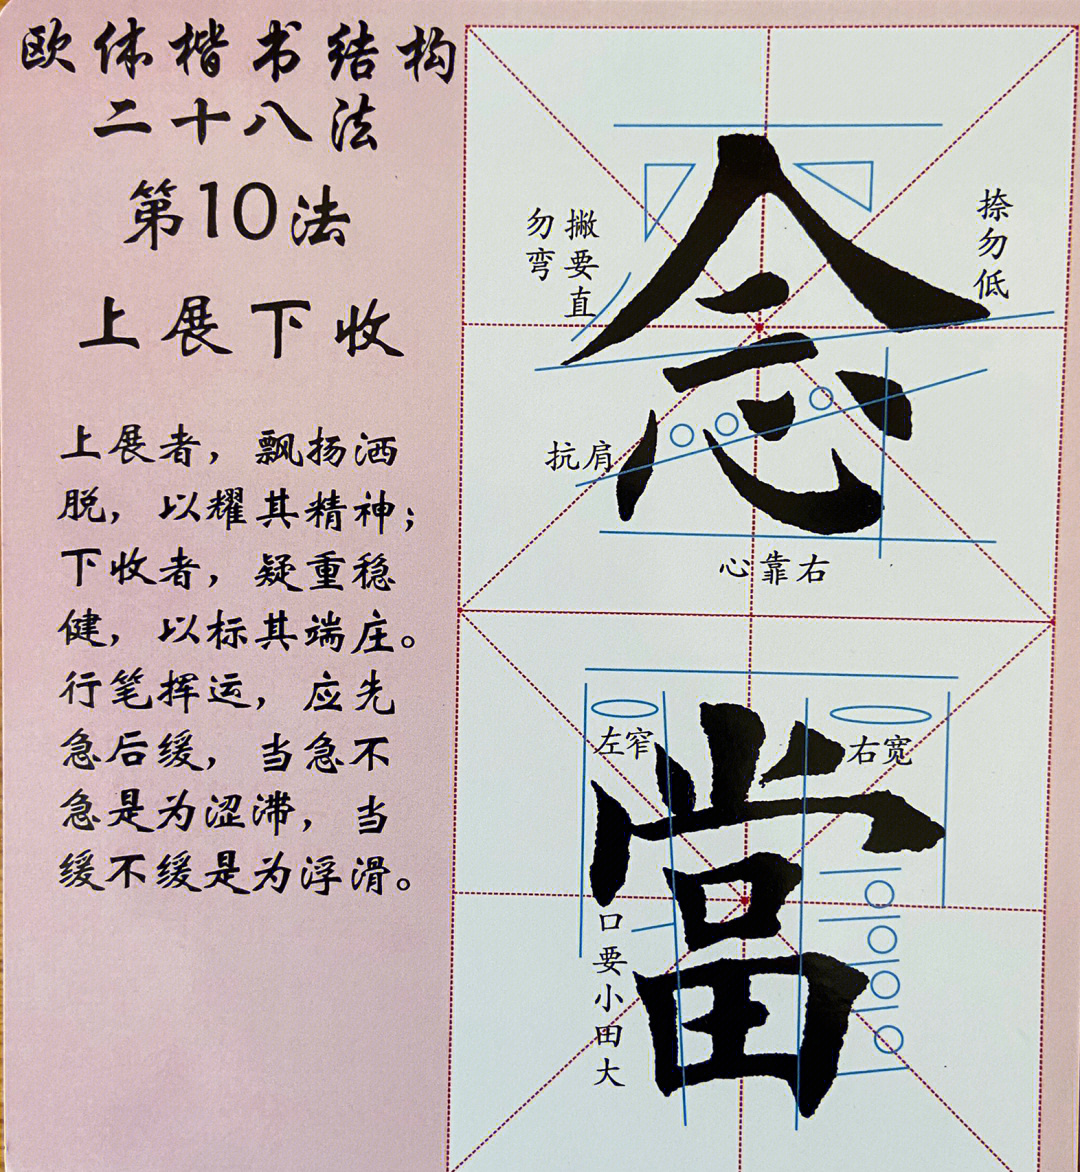 欧体楷书结构
二十八法
第10法
上展下收
上展者，飘扬洒
脱，以耀其精神；
下收者，疑重稳
健，以标其端庄。
行笔挥运，应先
急后缓，当急不
急是为涩滞，当
缓不缓是为浮滑。
念
撇要直
勿弯
捺勿低
抗肩
心靠右
當
左窄
右宽
口要小田大